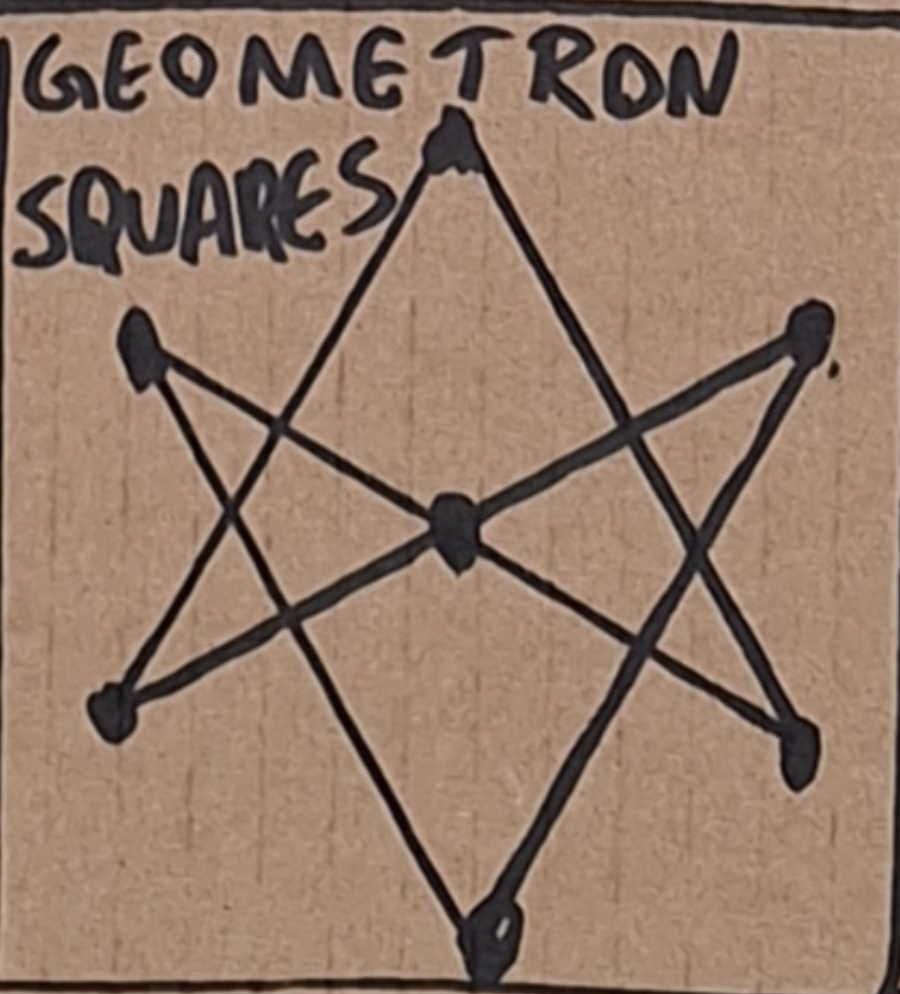 GEOMETRON
SQUARES